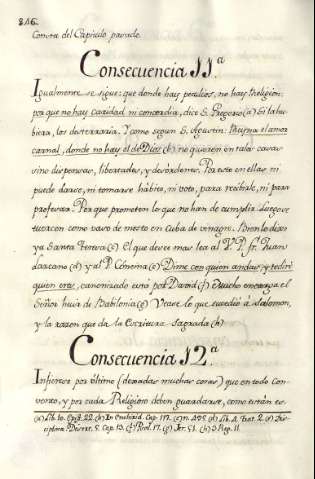 816.
Contra del Capitulo pasado
Consecuencia 11.ª
Igualmente se sigue: que donde hay peculios, no hay Religion;
porque no hay caridad ni concordia, dice S. Gregorio (a) Si la hu-
biera, los desterraria. Y como segun S. Agustin: Reyna el amor
carnal, donde no hay el de Dios (b) no quieren en tales casas
sino dispensas, libertades, y desórdenes. Por esto en ellas, ni
puede darse, ni tomarse hábito, ni voto, para recibirle, ni para
profesar. Porque prometen lo que no han de cumplir. Luego se
tuercen como vaso de mosto en Cuba de vinagre. Bien lo dixo
ya Santa Teresa (c) El que desee mas lea al V. P. fr. Juan
(d) y al P. (e) Dime con quien andas, y te diré
quien eres, canonizado esto por David (f) Mucho encarga el
Señor huir de Babilonia (g) Vease lo que sucedió á Salomon,
y la razon que da la Escritura Sagrada (h)
Consecuencia 12.ª
Infierese por último (dexadas muchas cosas) que en todo Con-
vento, y por cada Religioso deben guardarse, como están es-
(a) Lib. 10. Epist. 22. (b) In Enchirid. Cap. 117. (c) (d) Lib. 4. Trat. 2. (e)
Cap. 13. (f) Psal. 17. (g) Jer. 51. (h) 3 Reg. 11.